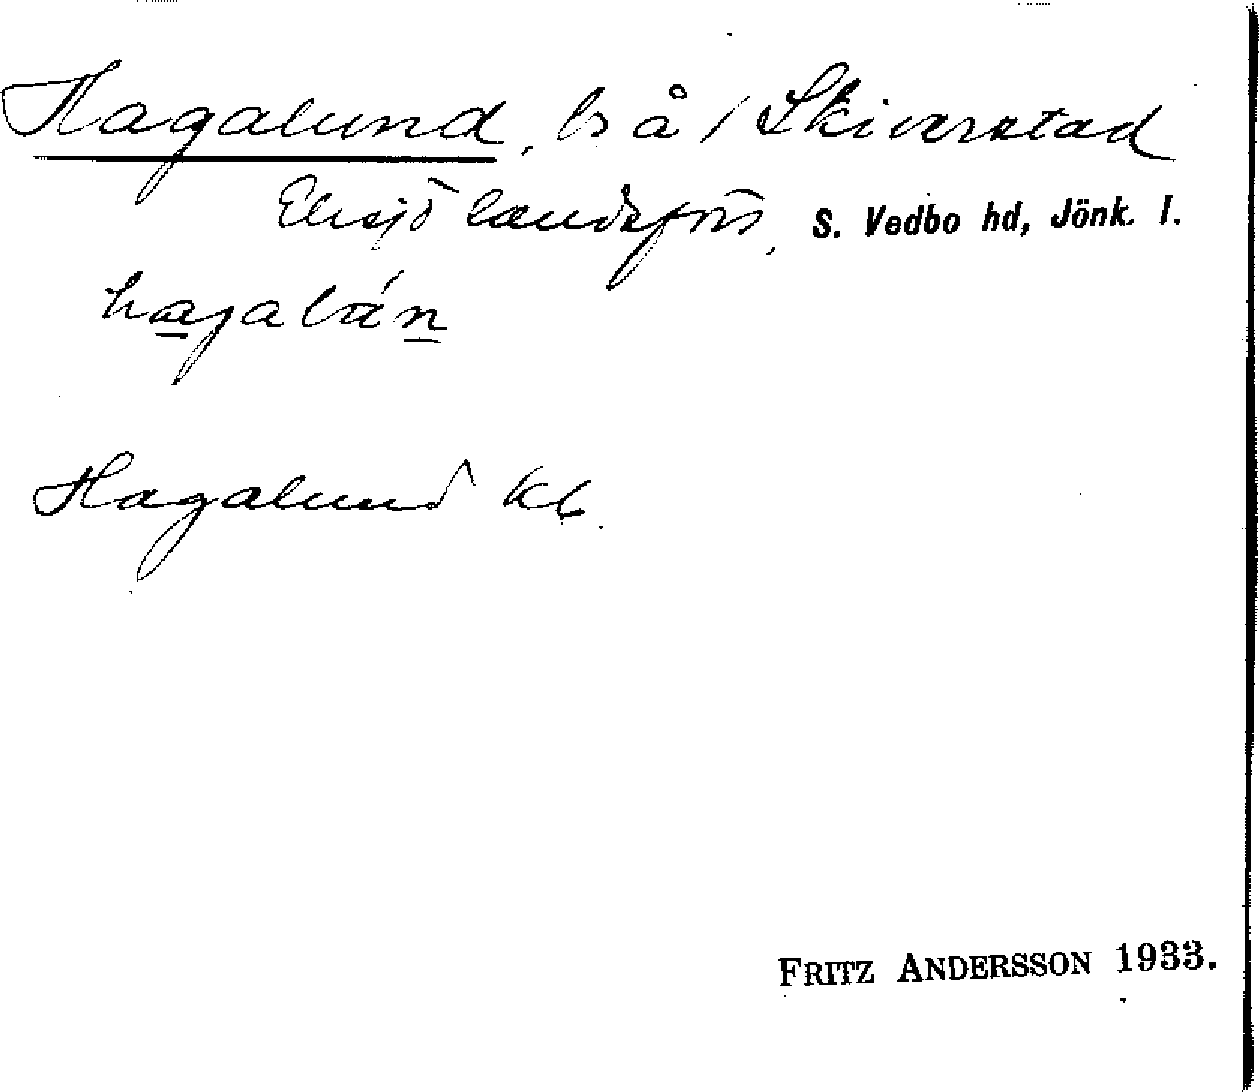 Hagalund, ls å / Skiverstad
Eksjö landsförs, S. Vedbo hd, Jönk. l.
Hagalund Kb.
FRITZ ANDERSSON 1933.